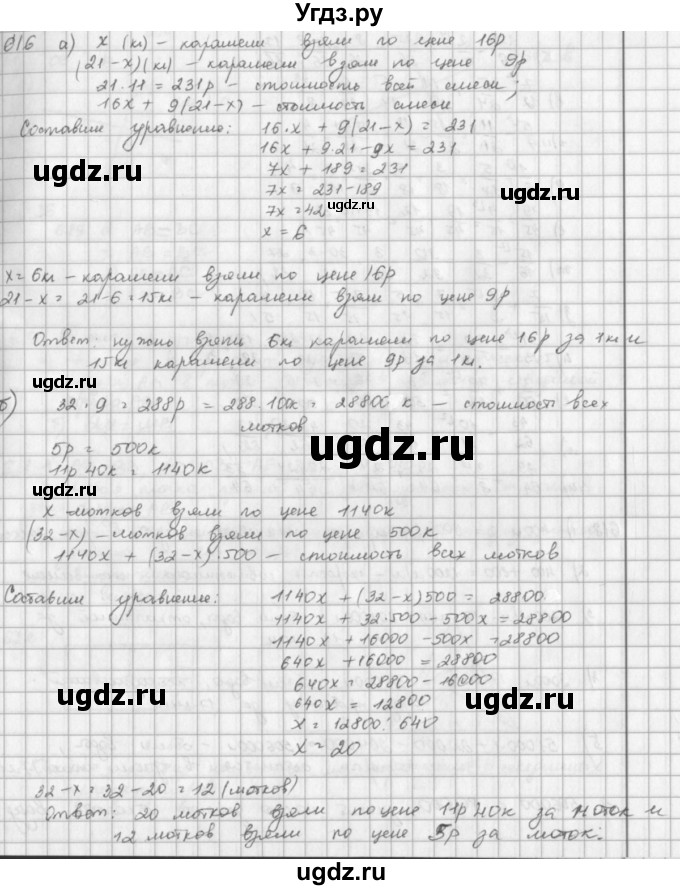 Угдз.ру
616 а) x (кг) – карамели взяли по цене 16р
(21-x)(кг) – карамели взяли по цене 9р
21·11 = 231р – стоимость всей смеси;
16x + 9(21-x) – стоимость смеси
Составим уравнение: 16·x + 9(21-x) = 231
16x + 9·21-9x = 231
7x + 189 = 231
ugdz.ru
7x = 231-189
ugdz.ru
7x = 42
ugdz.ru
x = 6
x = 6кг – карамели взяли по цене 16р
21-x = 21-6 = 15кг – карамели взяли по цене 9р
Ответ: нужно взять 6кг карамели по цене 16р за 1кг и
15кг карамели по цене 9р за 1кг.
ugdz.ru
ugdz.ru
б) 32·9 = 288р = 288·100к = 28800к – стоимость всех
мотков
ugdz.ru
5р = 500к
11р 40к = 1140к
x мотков взяли по цене 1140к
(32-x) – мотков взяли по цене 500к
1140x + (32-x)·500 – стоимость всех мотков
Составим уравнение: 1140x + (32-x)500 = 28800
1140x + 32·500 - 500x = 28800
1140x + 16000 - 500x = 28800
640x + 16000 = 28800
ugdz.ru
640x = 28800 - 16000
ugdz.ru
640x = 12800
ugdz.ru
x = 12800 : 640
x = 20
32-x = 32-20 = 12 (мотков)
Ответ: 20 мотков взяли по цене 11р 40к за моток и
12 мотков взяли по цене 5р за моток.
ugdz.ru
ugdz.ru